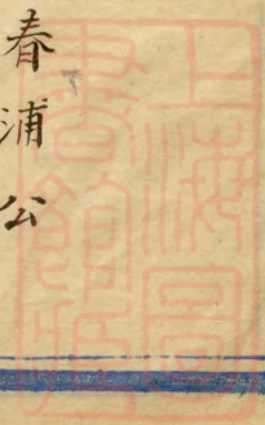 春浦公
上海圖
書館藏